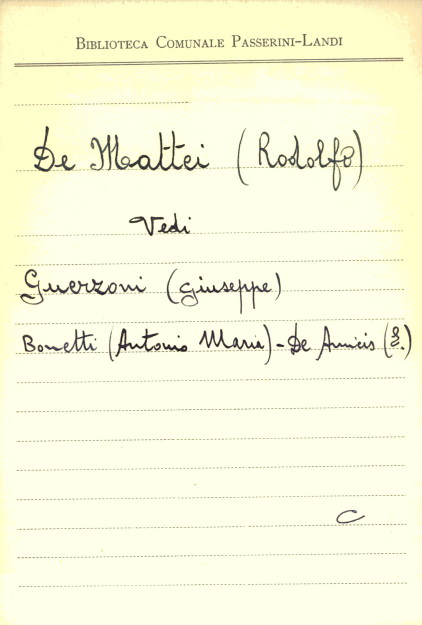 Biblioteca Comunale Passerini-Landi
De Mattei (Rodolfo)
Vedi
Guerzoni (Giuseppe)
Bonetti (Antonio Maria) - De Amicis (E.)
C